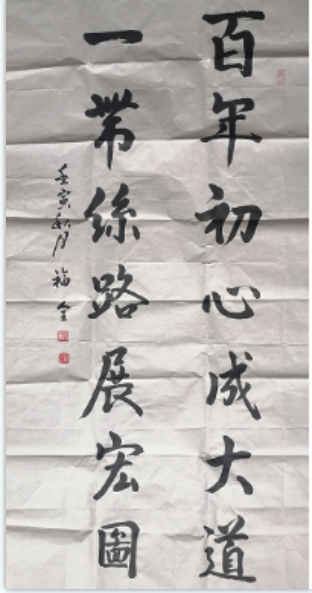 百年初心成大道
一带絲路展宏圖
壬寅秋月 福全